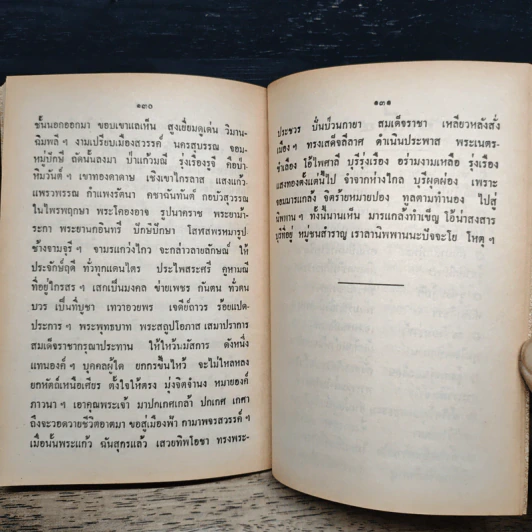 ๑๓๐
ชั้นนอกออกมา ขอบเขาแลเห็น สูงเยี่ยมดูเด่น วิมาน-
ฉิมพลี ฯ งามเปรียบเมืองสวรรค์ นครสุบรรณ จอม-
หมู่ปักษี ถัดนั้นลงมา ป่าแก้วมณี รุ่งเรืองรูจี คือป่า-
หิมวันต์ ฯ เขาทองตาดาษ เชิงเขาไกรลาส แสงแก้ว-
แพรวพรรณ กำแพงรัตนา คชาฉันทันต์ กอบัวสุวรรณ
ในไพรพฤกษา พระโคองอาจ รูปนาคราช พระยาม้า-
ระกา พระยานกอินทรี ปักษีปักษา โสฬสพรหมารูป-
ช้างจามจุรี ฯ จามรแกว่งไกว จะกล่าวลายลักษณ์ ให้
ประจักษ์ฤดี ทั่วทุกแดนไตร ประไพสระศรี คูหามณี
ที่อยู่ไกรสร ฯ เสกเป็นมงคล ข่ายเพชร กันตน ทั่วตน
บวร เป็นที่บูชา เทวาอวยพร เจดีย์ถาวร ร้อยแปด-
ประการ ฯ พระพุทธบาท พระสถูปโอภาส เสมาปราการ
สมเด็จราชากรุณาประทาน ให้ไหว้นมัสการ ดังหนึ่ง
แทนองค์ ฯ บุคคลผู้ใด ยกกรขึ้นไหว้ จะไม่ไหลหลง
ยกหัตถ์เหนือเศียร ตั้งใจให้ตรง มุ่งจิตจำนง หมายองค์
ภาวนา ฯ เอาคุณพระเจ้า มาปกเกศเกล้า ปกเกศ เกศา
ถึงจะวอดวายชีวิตอาตมา ขอสู่เมืองฟ้า กามาพจรสวรรค์ ฯ
เมื่อนั้นพระแก้ว ฉันสุกรแล้ว เสวยทิพโอชา ทรงพระ-
๑๓๑
ประชวร ปั่นป่วนกายา สมเด็จราชา เหลียวหลังสั่ง
เมือง ฯ ทรงเสด็จลีลาศ ดำเนินประพาส พระเนตร-
ชำเลือง โอ้ไพศาลี บุรีรุ่งเรือง อร่ามงามเหลือ รุ่งเรือง
แสงทองตั้งแต่นี้ไป จำจากห่างไกล บุรีผุดผ่อง เพราะ
จอมมารแกล้ง จิตร้ายหมายปอง ทูลตามทำนอง ไปสู่
นิพพาน ฯ ทั้งนี้นานเห็น มารแกล้งทำเข็ญ โอ้น่าสงสาร
บุรีที่อยู่ หมู่ชนสำราญ เราลานิพพานนะปัจจะโย โหตุ ฯ